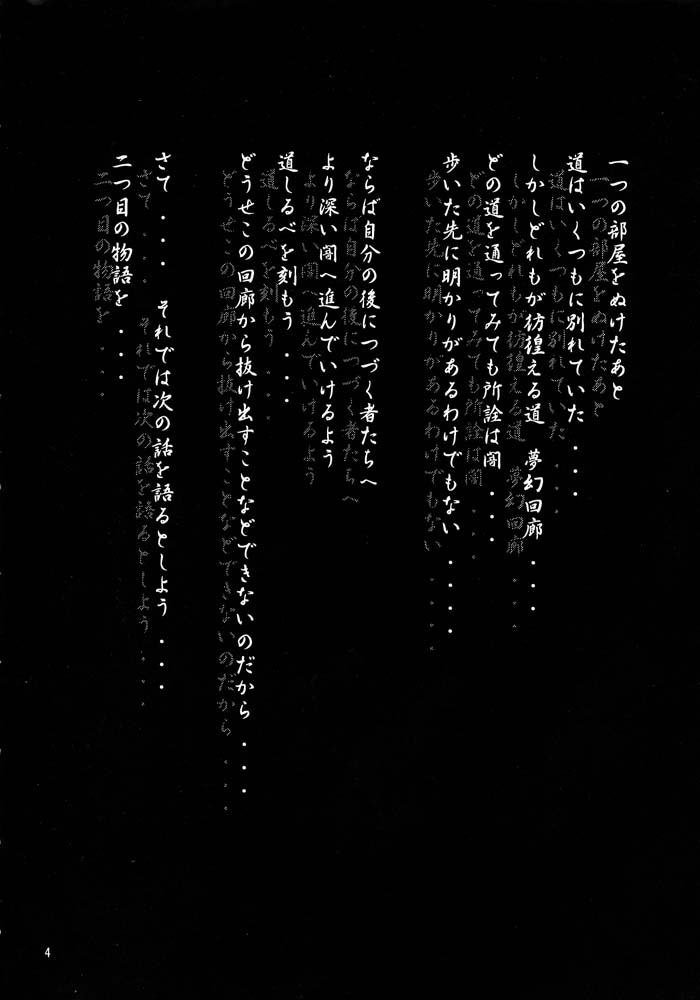 一つの部屋をぬけたあと
道はいくつもに別れていた．．．
しかしどれもが彷徨える道　夢幻回廊．．．
どの道を通ってみても所詮は闇．．．
歩いた先に明かりがあるわけでもない．．．．
ならば自分の後につづく者たちへ
より深い闇へ進んでいけるよう
道しるべを刻もう．．．
どうせこの回廊から抜け出すことなどできないのだから．．．
さて．．．　それでは次の話を語るとしよう．．．
二つ目の物語を．．．
4